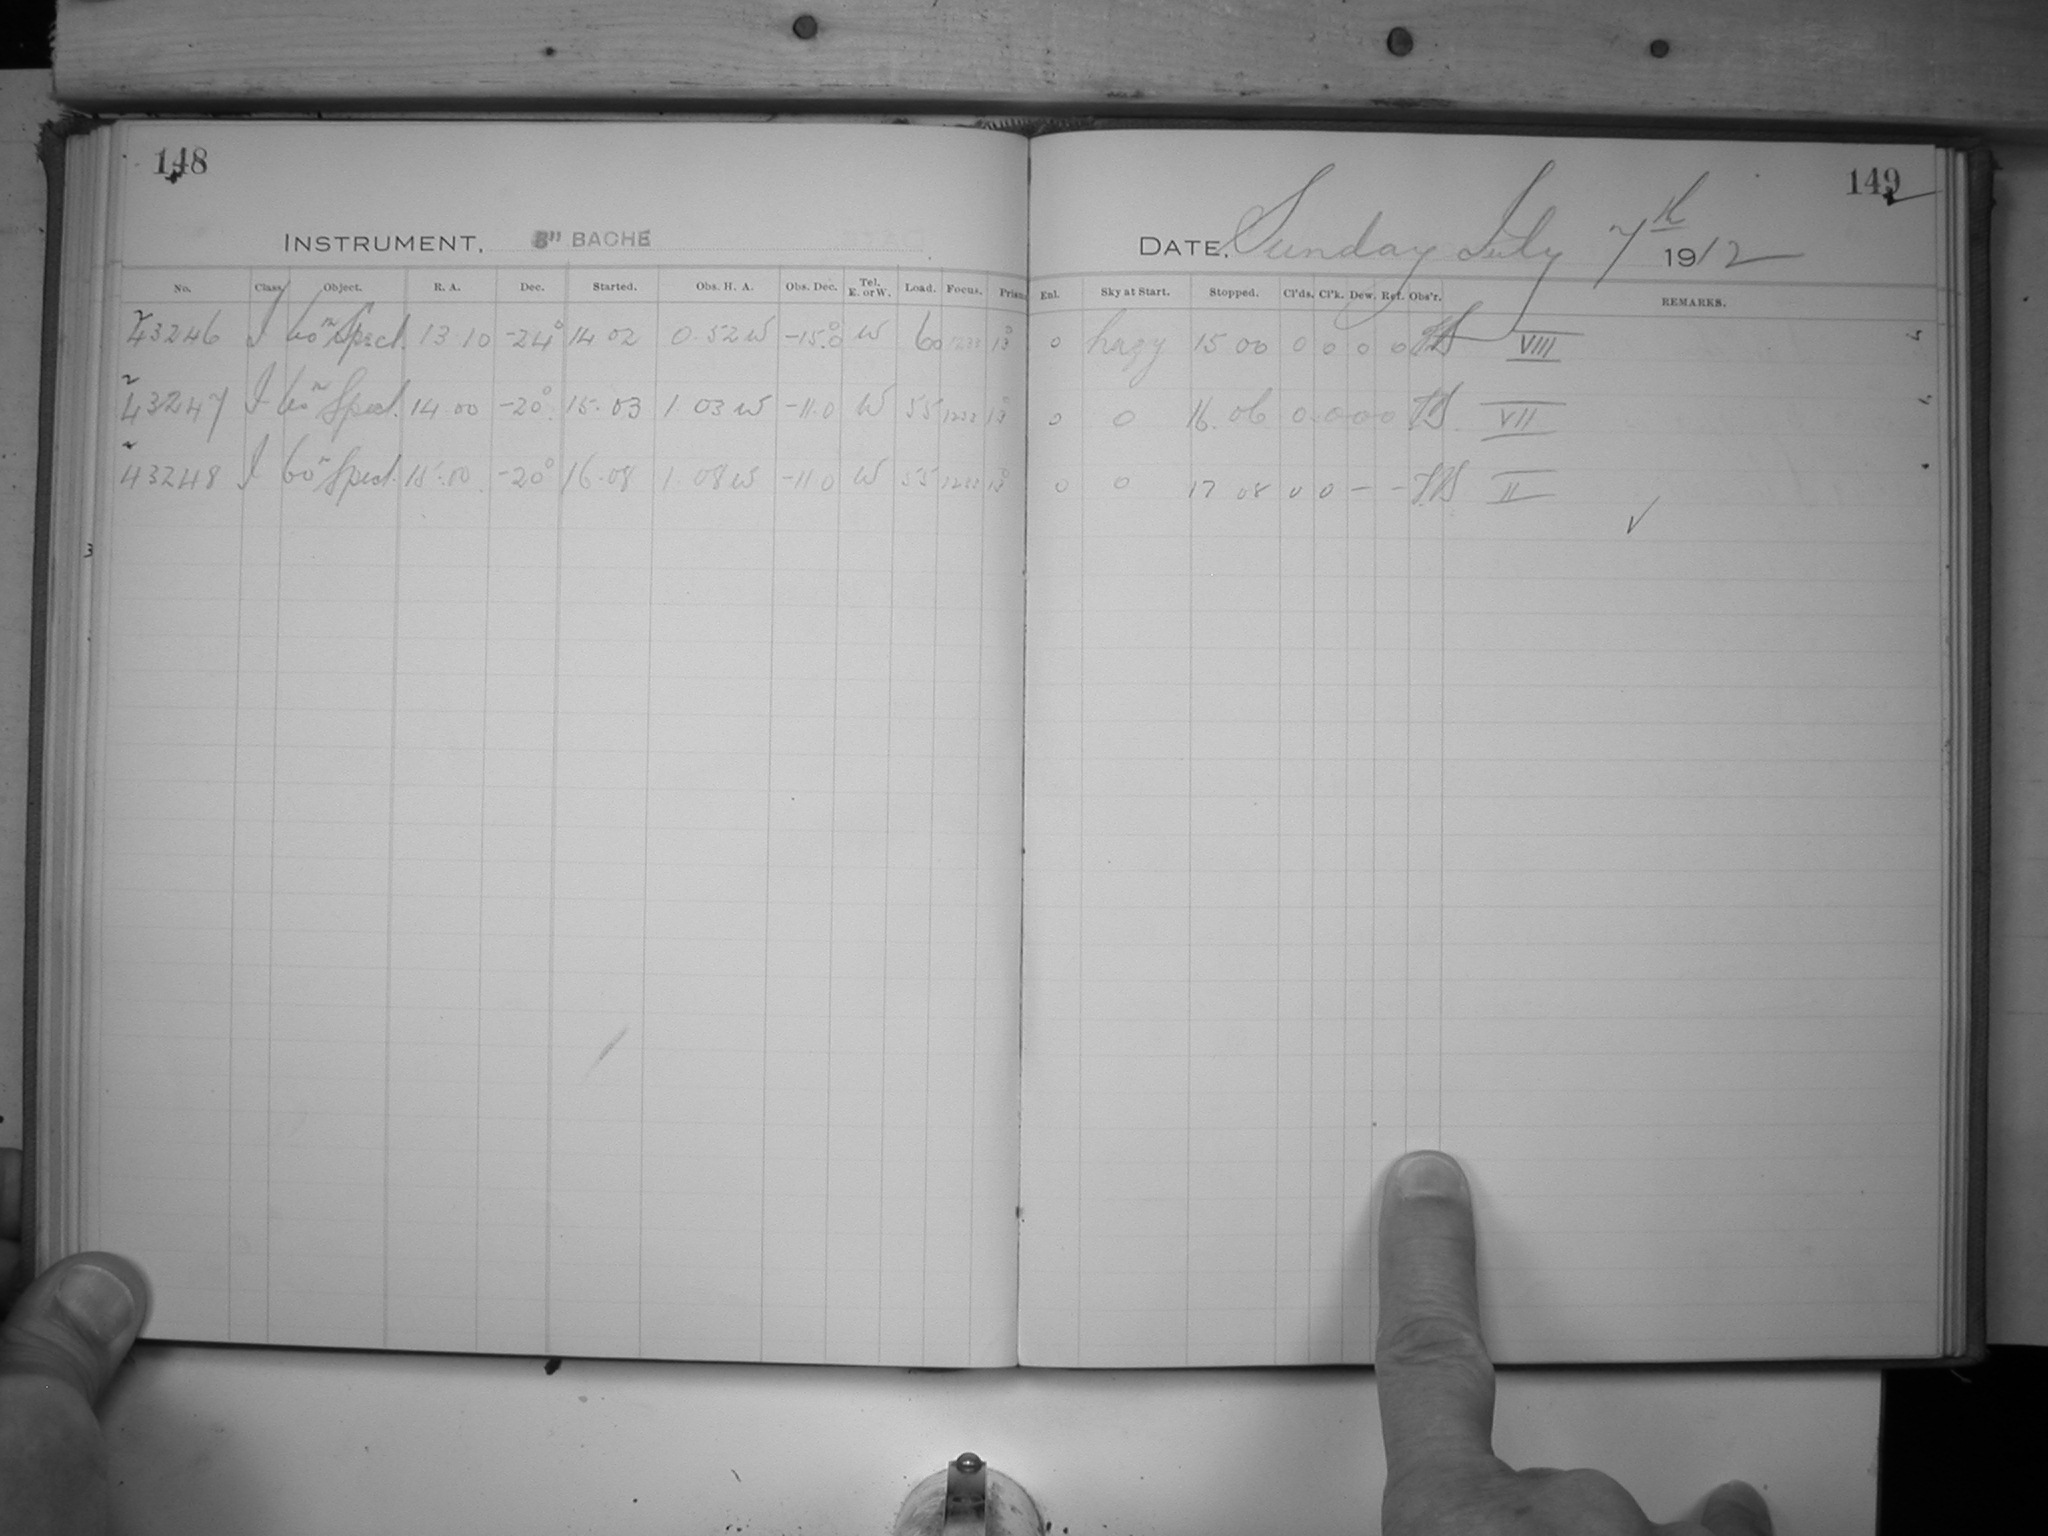 148
INSTRUMENT, 8" BACHE
No. Class. Object. R. A. Dec. Started. Obs. H. A. Obs. Dec. Tel. E. or W. Load. Focus. Prism
43246 I 60m Spect. 13 10 -24° 14 02 0 52 W -15.0 W 60 13°
43247 I 60m Spect. 14 00 -20° 15 03 1 03 W -11.0 W 55 13°
43248 I 60m Spect. 15 00 -20° 16 08 1 08 W -11.0 W 55 13°
149
DATE, Sunday July 7th 1912
Enl. Sky at Start. Stopped. Cl'ds. Cl'k. Dew. Ref. Obs'r. REMARKS.
0 hazy 15 00 0 0 0 0 VIII
0 0 16 06 0 0 0 0 VII
0 0 17 08 0 0 - - II